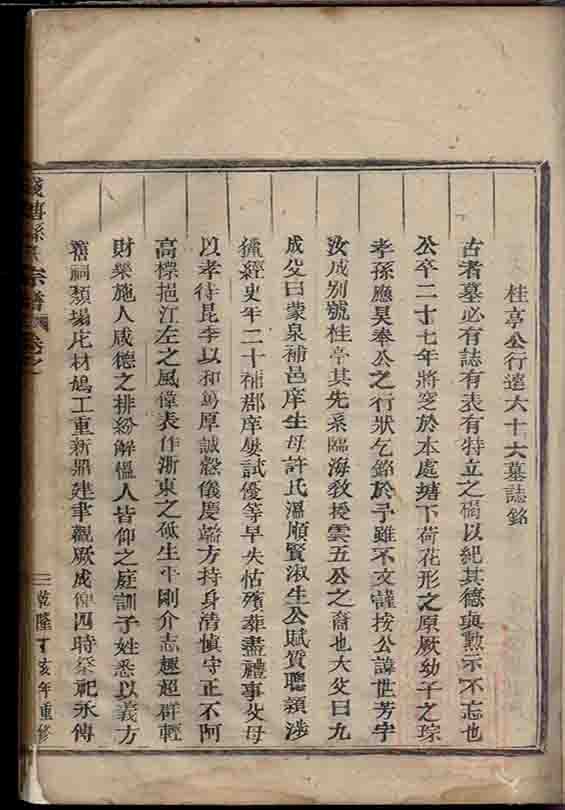 桂亭公行達六十六墓誌銘
古者墓必有誌有表有特立之碣以紀其德與勲示不忘也
公卒二十七年將窆於本處塘下荷花形之原厥幼子之琮
孝孫應昊奉公之行狀乞銘於予雖不文謹按公諱世芳字
汝成別號桂亭其先系臨海教授雲五公之裔也大父曰九
成父曰蒙泉補邑庠生母許氏溫順賢淑生公賦質聰穎涉
獵經史年二十補郡庠屡試優等早失怙殯葬盡禮事父母
以孝待昆季以和篤厚誠慤儀度端方持身清慎守正不阿
高標挹江左之風偉表作浙東之砥生平剛介志趣超群輕
財樂施人咸德之排紛解慍人皆仰之庭訓子姓悉以義方
舊祠頽塲庀材鳩工重新鼎建聿觀厥成俾四時祭祀永傳
宗譜 卷之
乾隆丁亥年重修